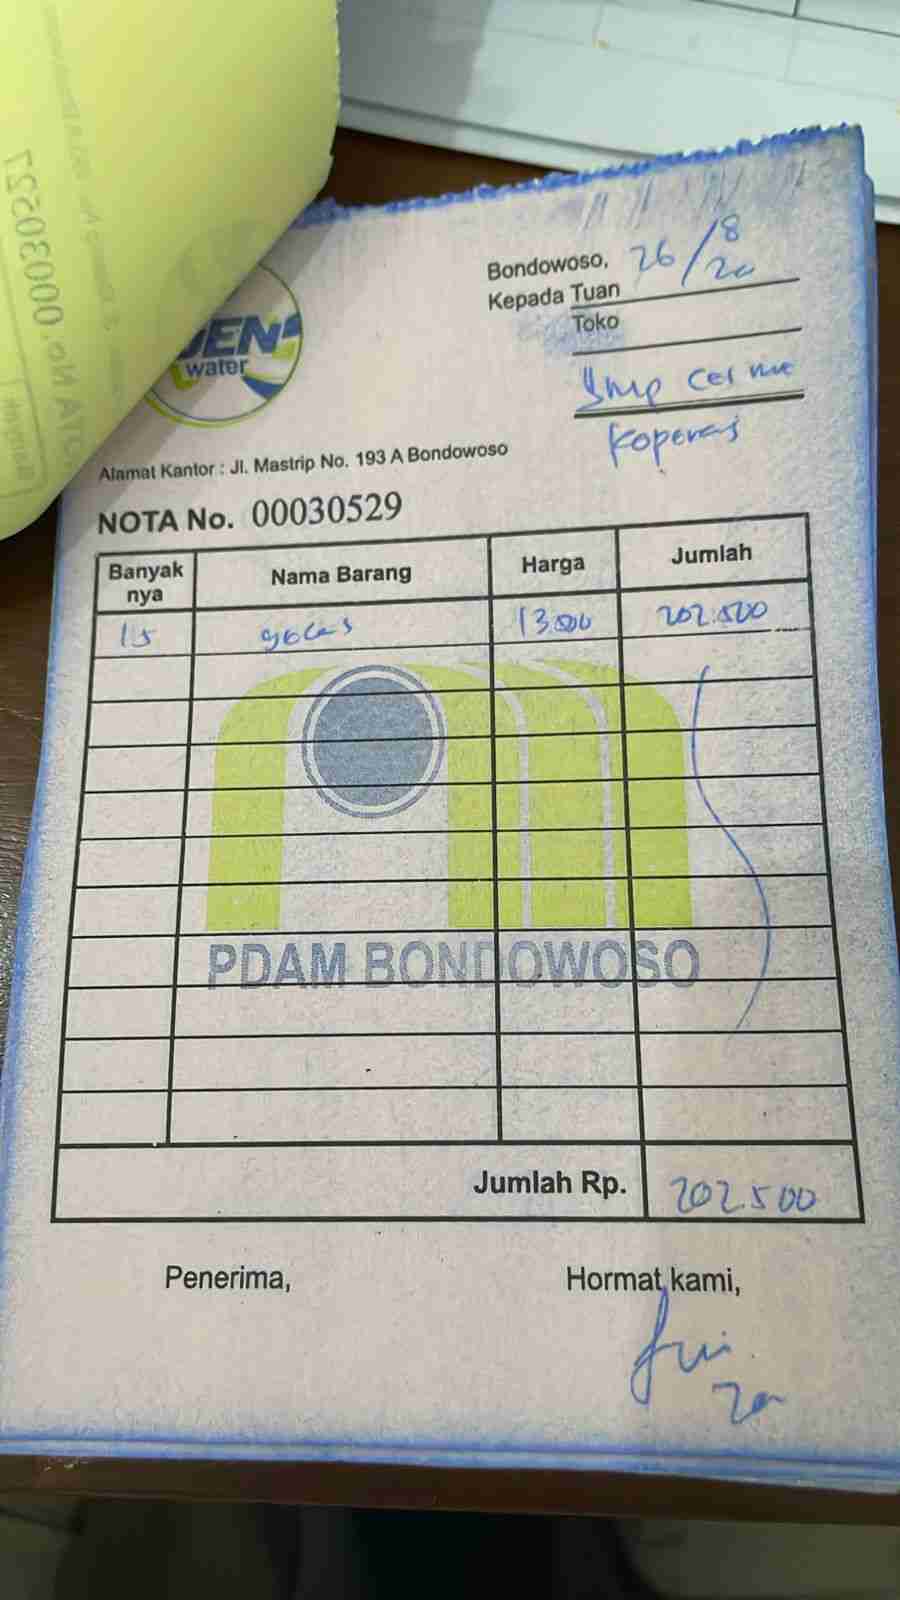 No. 00030527
JEN
water
Bondowoso, 26/8/20
Kepada Tuan
Toko
Smp Cerme
Koperasi
Alamat Kantor : Jl. Mastrip No. 193 A Bondowoso
NOTA No. 00030529
Banyak nya Nama Barang Harga Jumlah
15 gelas 13.500 202.500
PDAM BONDOWOSO
Jumlah Rp. 202.500
Penerima, Hormat kami,